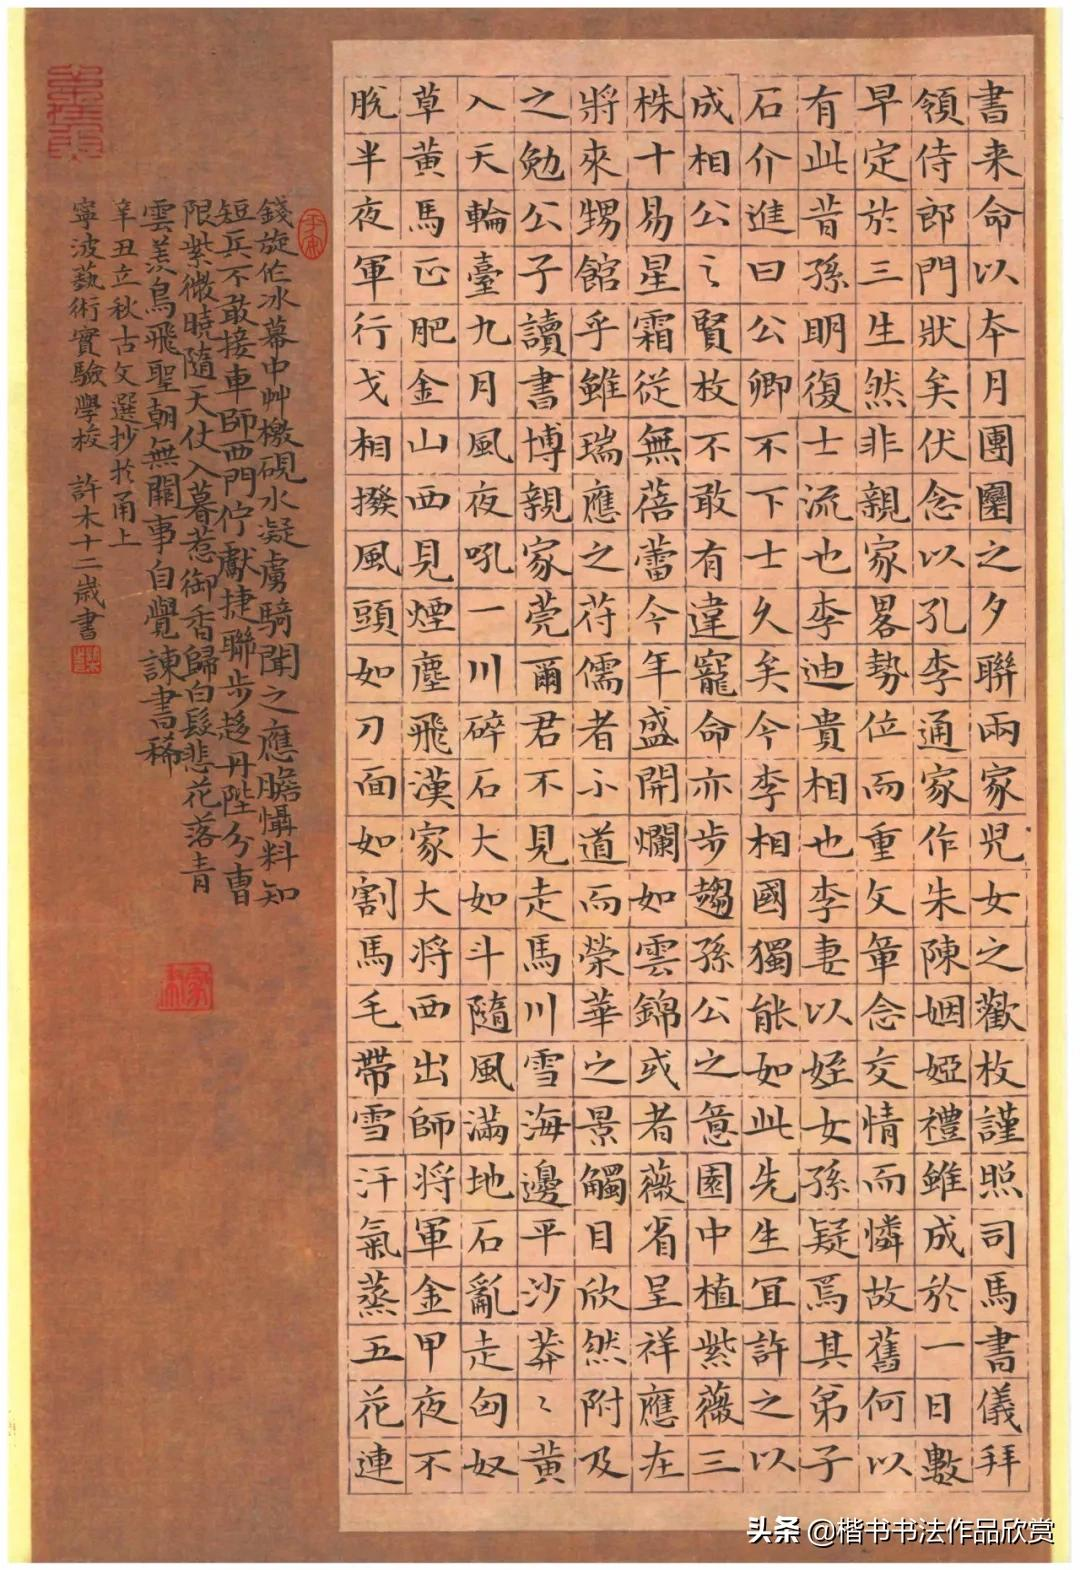 書来命以本月團圞之夕聯兩家児女之歡枚謹照司馬書儀拜
領侍郎門狀矣伏念以孔李通家作朱陳姻婭禮雖成於一日數
早定於三生然非親家畧勢位而重文章念交情而憐故舊何以
有此昔孫明復士流也李迪貴相也李妻以姪女孫疑焉其弟子
石介進曰公卿不下士久矣今李相國獨能如此先生宜許之以
成相公之賢枚不敢有違寵命亦步趨孫公之意園中植紫薇三
株十易星霜從無蓓蕾今年盛開爛如雲錦或者薇省呈祥應在
將來甥館乎雖瑞應之符儒者不道而榮華之景觸目欣然附及
之勉公子讀書博親家莞爾君不見走馬川雪海邊平沙莽〻黃
入天輪臺九月風夜吼一川碎石大如斗隨風滿地石亂走匈奴
草黃馬正肥金山西見煙塵飛漢家大將西出師將軍金甲夜不
脫半夜軍行戈相撥風頭如刀面如割馬毛帶雪汗氣蒸五花連
錢旋作冰幕中艸檄硯水凝虜騎聞之應膽懾料知
短兵不敢接車師西門佇獻捷聯步趨丹陛分曹
限紫微曉隨天仗入暮惹御香歸白髮悲花落青
雲羨鳥飛聖朝無闕事自覺諫書稀
辛丑立秋古文選抄於甬上
寧波藝術實驗學校 許木十二歲書
头条 @楷书书法作品欣赏